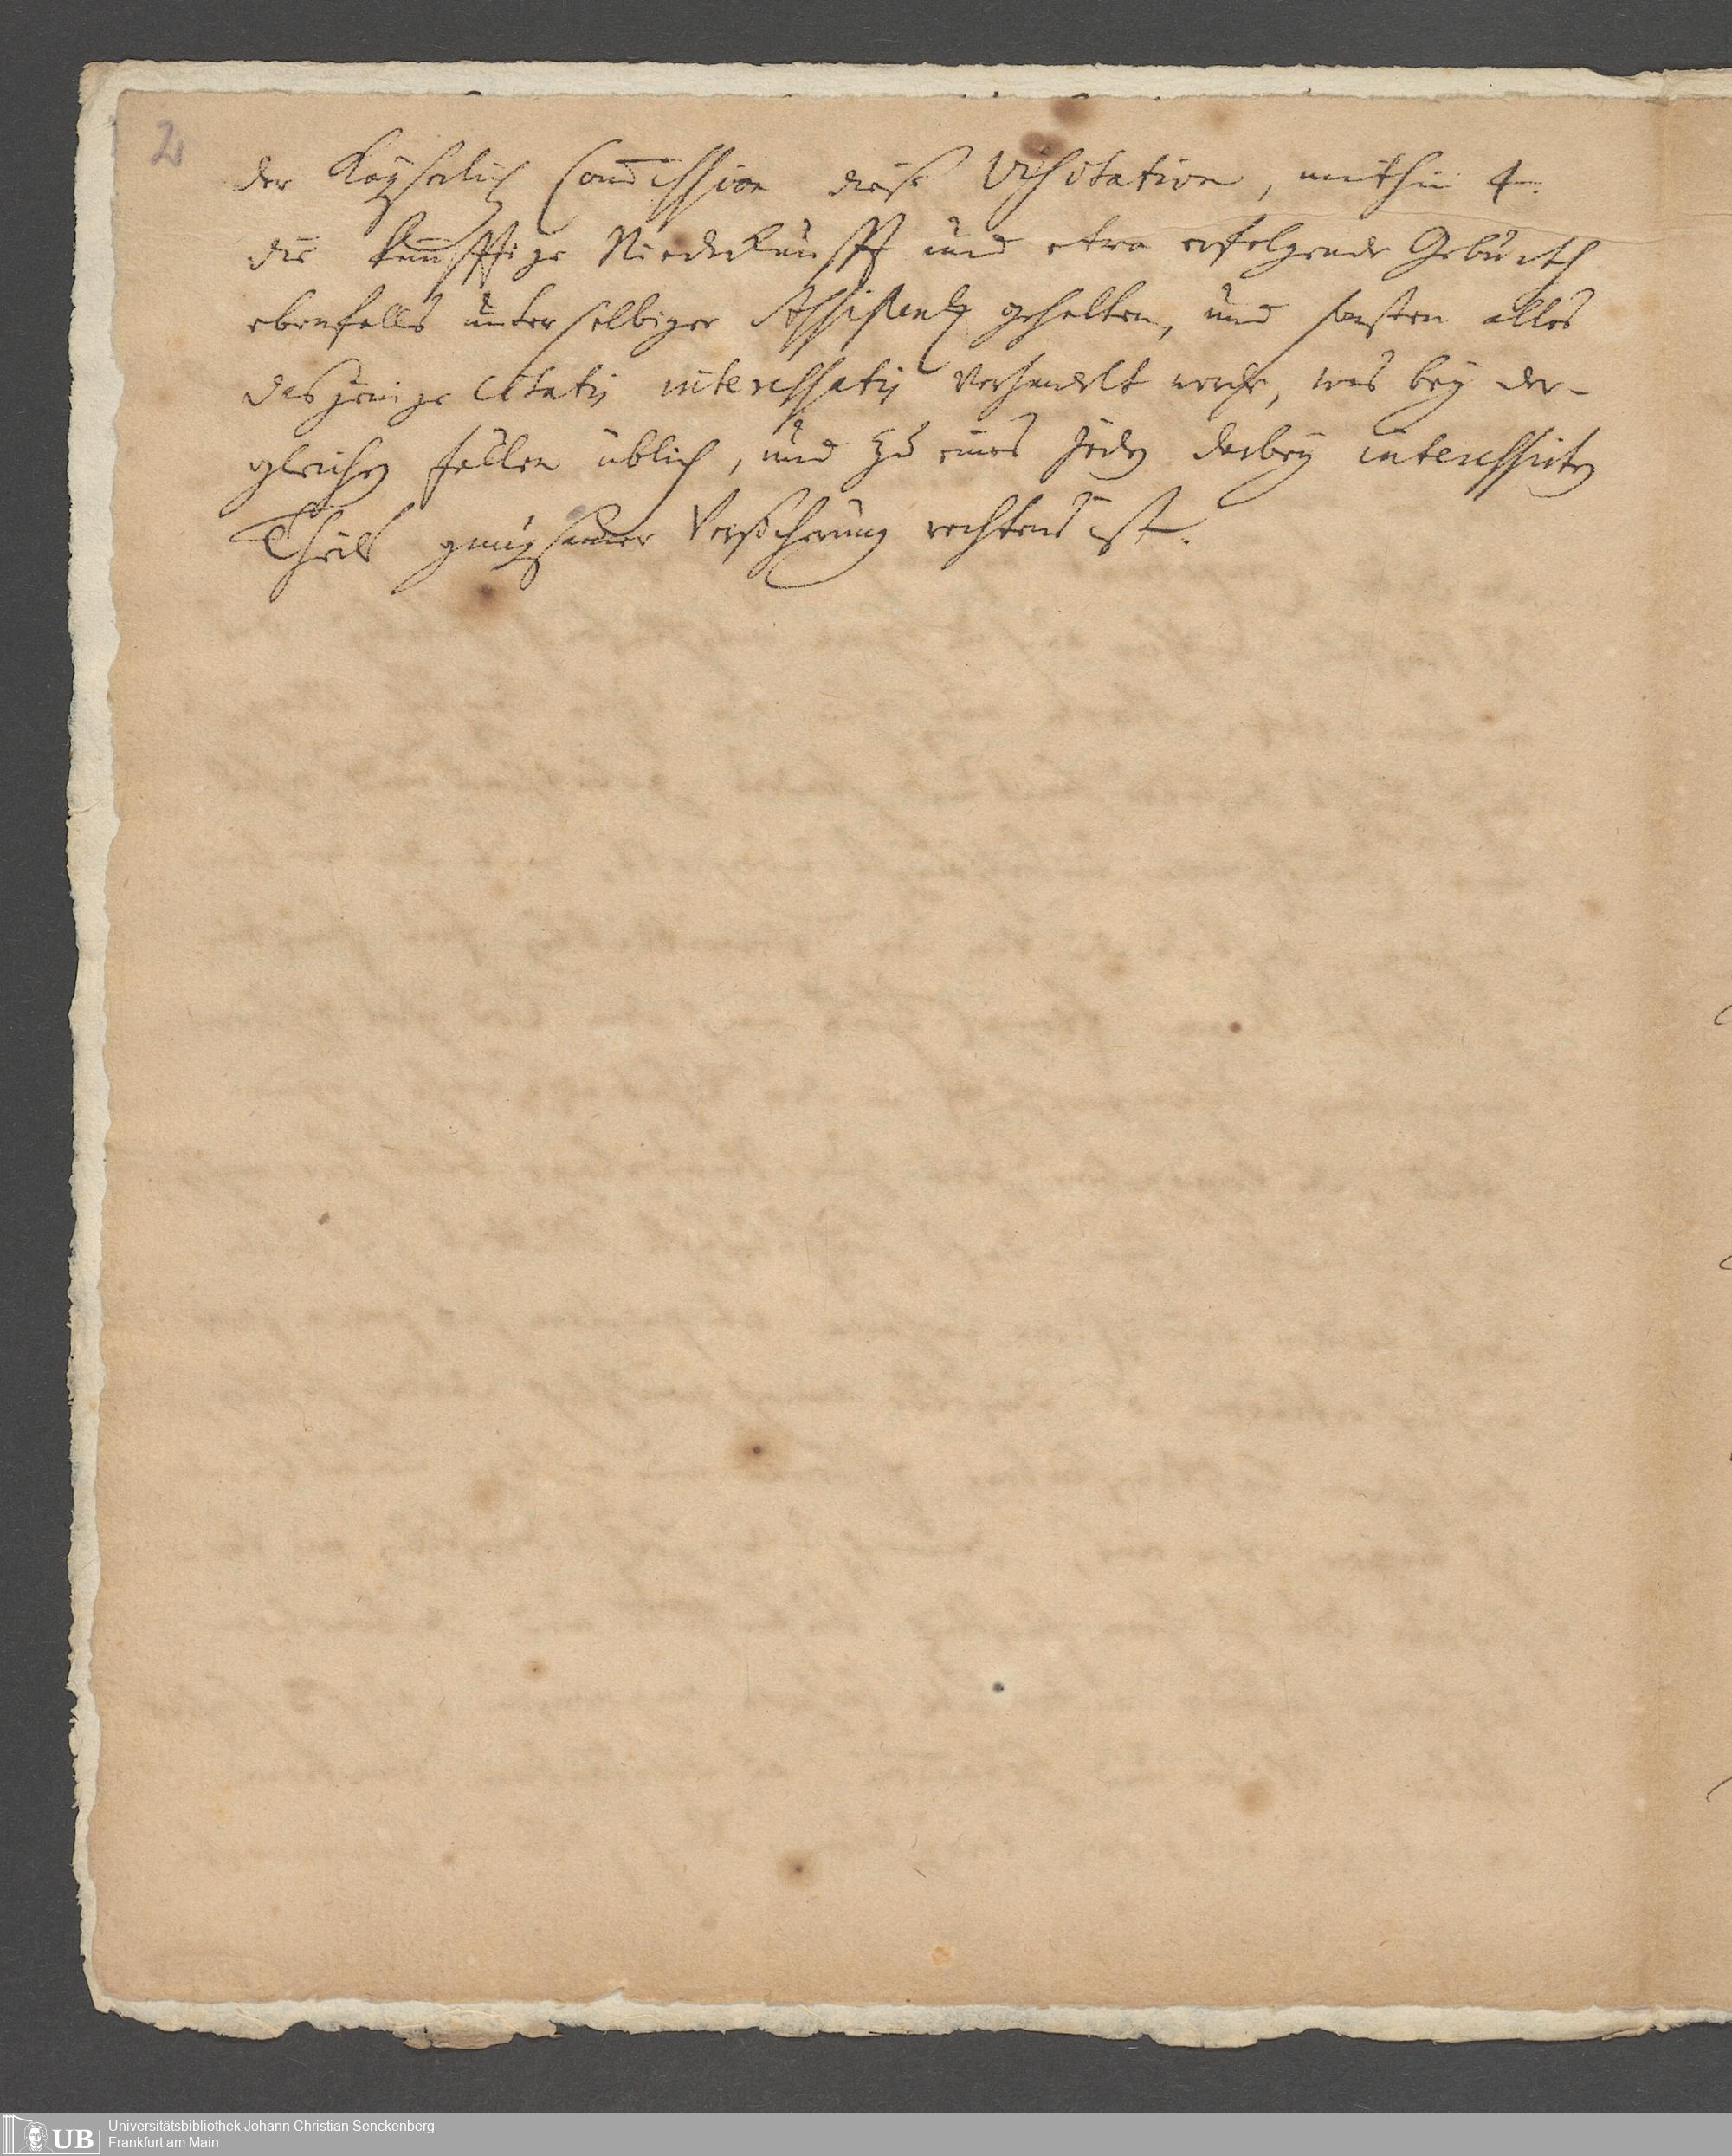 2
der Kayserlich Com̄ission diese Visitation, mithin 4.
die künfftige Niederkunfft und etwa erfolgende Gebürth
ebenfalls unter selbiger Assistentz gehalten, und sonsten alles
dasjenige citatis interessatis verhandelt werde, was bey der-
gleichen fällen üblich, und zu eines jeden darbey interessirten
Theils gnugsamer Versicherung rechtens ist.
UB
Universitätsbibliothek Johann Christian Senckenberg
Frankfurt am Main